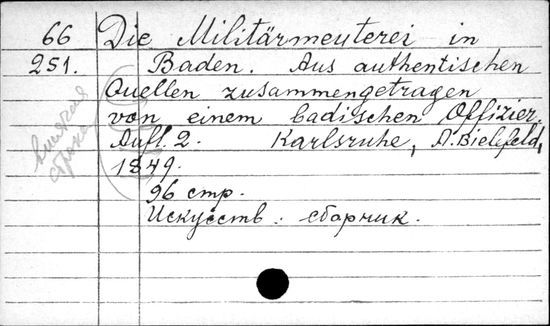 66 Die Militärmeuterei in
251. Baden. Aus authentischen
Quellen zusammengetragen
von einem badischen Offizier.
Aufl. 2. Karlsruhe, A. Bielefeld,
1849.
96 стр.
Искусств. сборник.